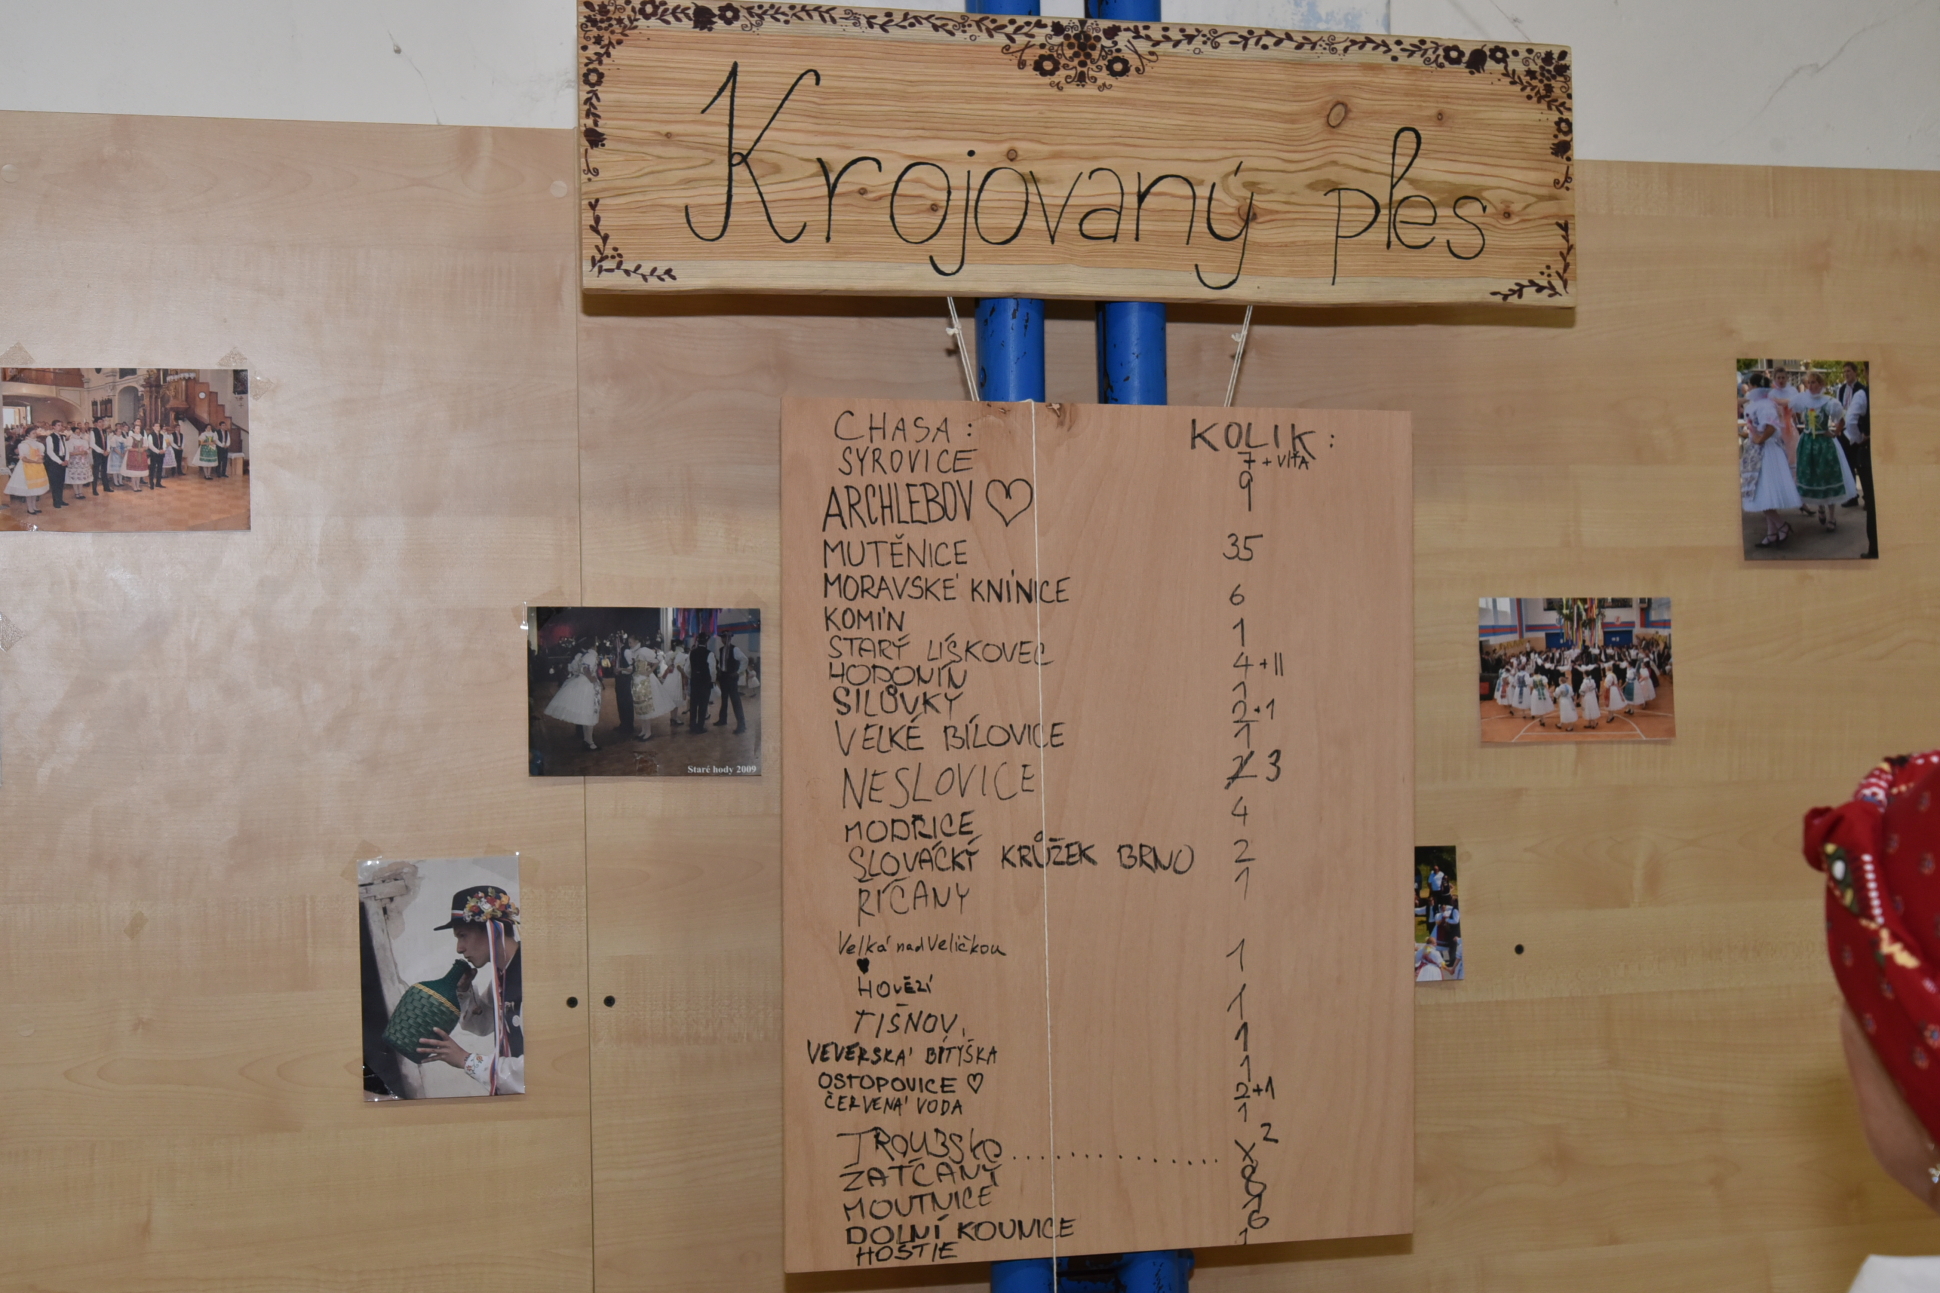 Krojovaný ples
CHASA: KOLIK:
SYROVICE 7 + VÍŤA
ARCHLEBOV ♡ 9
MUTĚNICE 35
MORAVSKÉ KNÍNICE 6
KOMÍN 1
STARÝ LÍSKOVEC 4 + II
HODONÍN 1
SILŮVKY 2+1
VELKÉ BÍLOVICE 1
NESLOVICE 3
MODŘICE 4
SLOVÁCKÝ KRŮŽEK BRNO 2
ŘÍČANY 1
Velká nad Veličkou 1
♥
HOVĚZÍ 1
TIŠNOV 1
VEVERSKÁ BÍTÝŠKA 1
OSTOPOVICE ♡ 2+1
ČERVENÁ VODA 1
TROUBSKO ............. x²
ŽATČANY
MOUTNICE
DOLNÍ KOUNICE 6
HOSTIE 1
Staré hody 2009